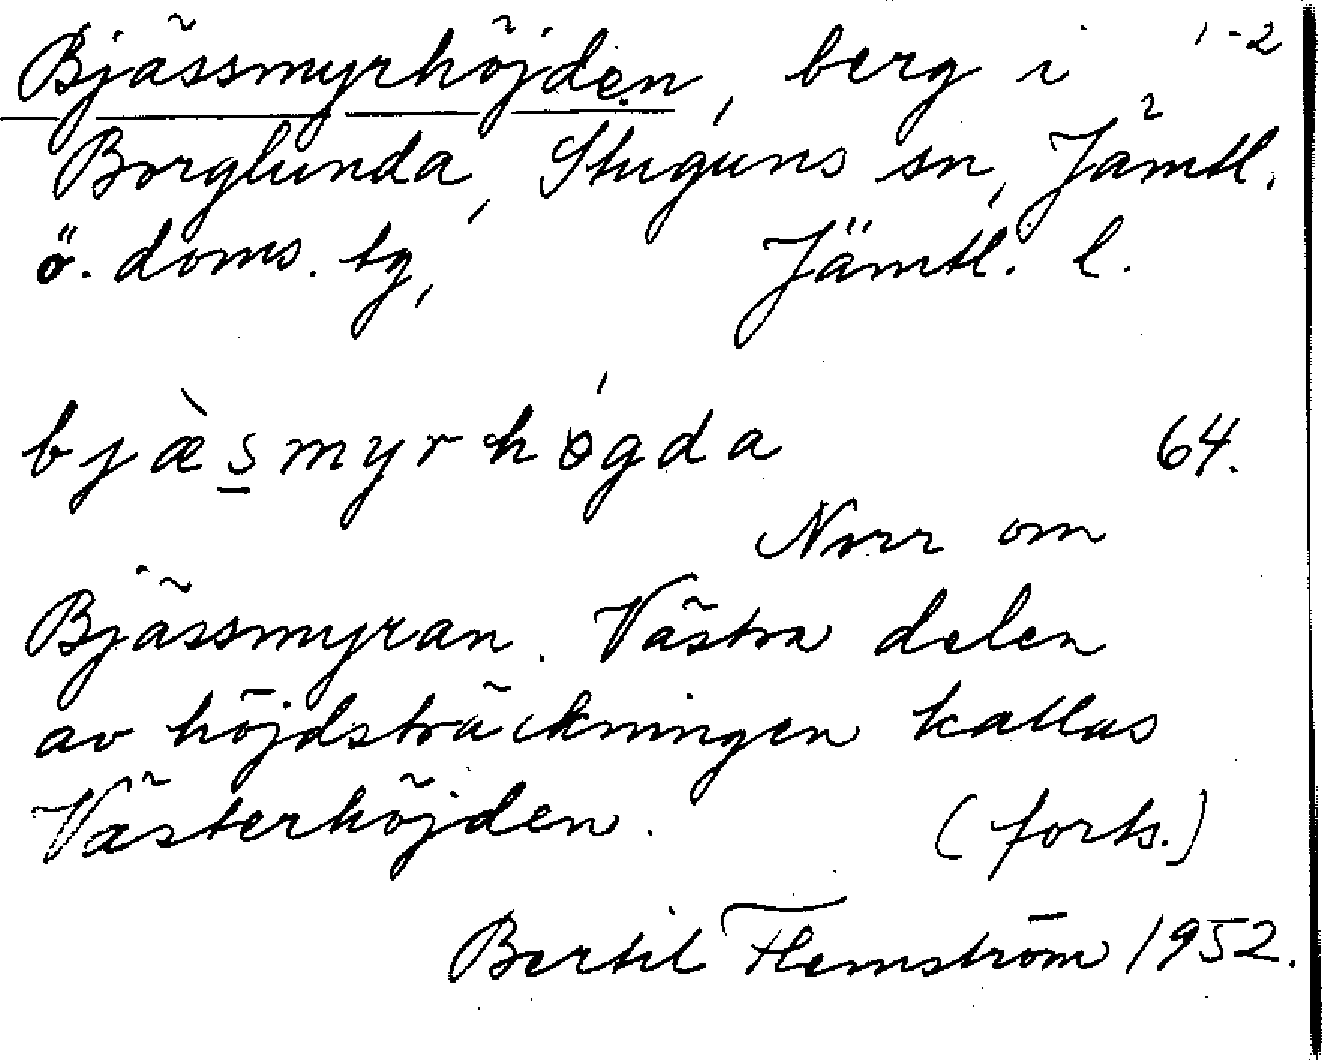 Bjässmyrhöjden, berg i 1-2
Borglunda, Stuguns sn, Jämtl.
ö. doms. tg, Jämtl. l.
bjæ̀smyrhǿgda 64.
Norr om
Bjässmyran. Västra delen
av höjdsträckningen kallas
Västerhöjden. (forts.)
Bertil Flemström 1952.